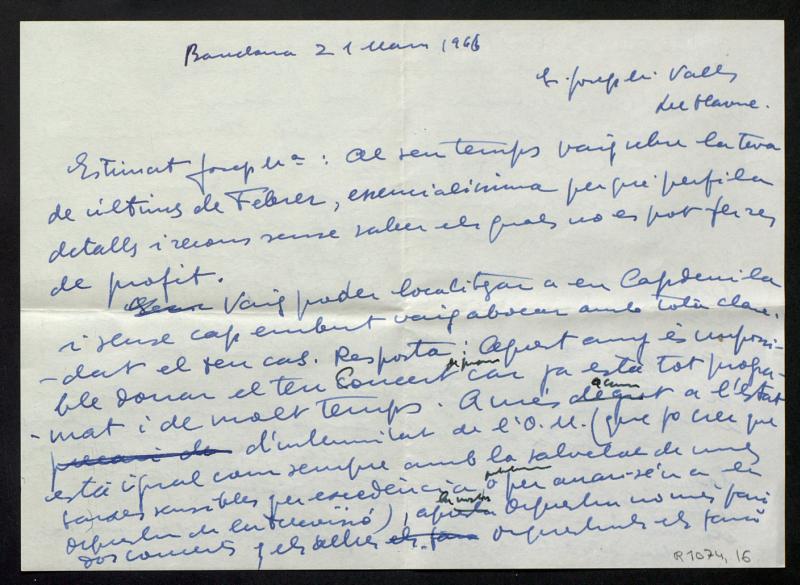 Barcelona 21 Març 1966
Sr. Joseph Mª Valls
Estimat Joseph Mª: Al seu temps vaig rebre la teva
de últims de Febrer, esencialissima perquè perfila
detalls i recons sense saber els quals no es pot fer res
de profit.
Vaig poder localitzar a en Capdevila
i sense cap embut vaig abocar amb tota clare-
-dat el seu cas. Resposta: Aquest any és impossi-
ble donar el teu Concert car ja està tot progra-
-mat i de molt temps. A més degut a l'Estat
precari de d'indemnitat de l'O.M. (que jo crec que
està igual com sempre amb la salvetat de unes
baixes sensibles per excedència o per anar-se'n a
orquestra de la televisió), orquestra només farà
dos concerts i els altres els farà
R 1074, 16